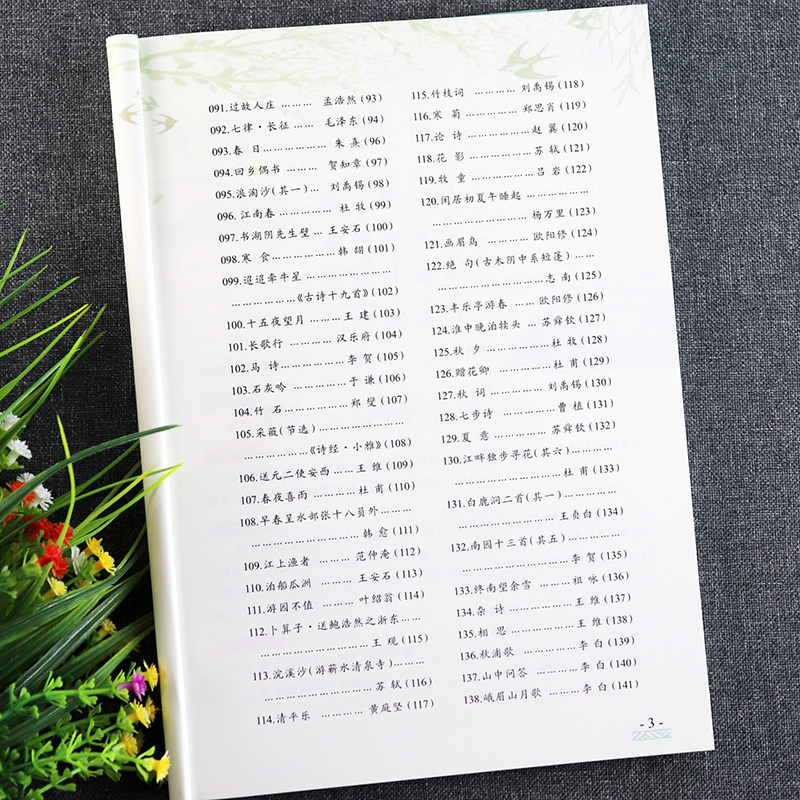 091.过故人庄 ……… 孟浩然(93)
092.七律·长征 …… 毛泽东(94)
093.春 日……………… 朱 熹(96)
094.回乡偶书 ……… 贺知章(97)
095.浪淘沙(其一)… 刘禹锡(98)
096.江南春 …………… 杜 牧(99)
097.书湖阴先生壁 … 王安石(100)
098.寒 食……………… 韩 翃(101)
099.迢迢牵牛星 ……………………
………………《古诗十九首》(102)
100.十五夜望月 ……… 王 建(103)
101.长歌行 ………… 汉乐府(104)
102.马 诗………………李 贺(105)
103.石灰吟 …………… 于 谦(106)
104.竹 石……………… 郑 燮(107)
105.采薇(节选) ……………………
………………《诗经·小雅》(108)
106.送元二使安西 …… 王 维(109)
107.春夜喜雨 ………… 杜 甫(110)
108.早春呈水部张十八员外………
………………………… 韩 愈(111)
109.江上渔者 ……… 范仲淹(112)
110.泊船瓜洲 ……… 王安石(113)
111.游园不值 ……… 叶绍翁(114)
112.卜算子·送鲍浩然之浙东……
………………………… 王 观(115)
113.浣溪沙(游蕲水清泉寺)………
………………………… 苏 轼(116)
114.清平乐 ………… 黄庭坚(117)
115.竹枝词 ………… 刘禹锡(118)
116.寒 菊…………… 郑思肖(119)
117.论 诗……………… 赵 翼(120)
118.花 影……………… 苏 轼(121)
119.牧 童……………… 吕 岩(122)
120.闲居初夏午睡起 ………………
……………………… 杨万里(123)
121.画眉鸟 ………… 欧阳修(124)
122.绝 句(古木阴中系短篷)……
………………………… 志 南(125)
123.丰乐亭游春 …… 欧阳修(126)
124.淮中晚泊犊头 … 苏舜钦(127)
125.秋 夕……………… 杜 牧(128)
126.赠花卿 …………… 杜 甫(129)
127.秋 词…………… 刘禹锡(130)
128.七步诗 …………… 曹 植(131)
129.夏 意…………… 苏舜钦(132)
130.江畔独步寻花(其六)…………
………………………… 杜 甫(133)
131.白鹿洞二首(其一)……………
……………………… 王贞白(134)
132.南园十三首(其五)……………
………………………… 李 贺(135)
133.终南望余雪 ……… 祖 咏(136)
134.杂 诗………………王 维(137)
135.相 思………………王 维(138)
136.秋浦歌 ……………李 白(139)
137.山中问答 …………李 白(140)
138.峨眉山月歌 ………李 白(141)
- 3 -